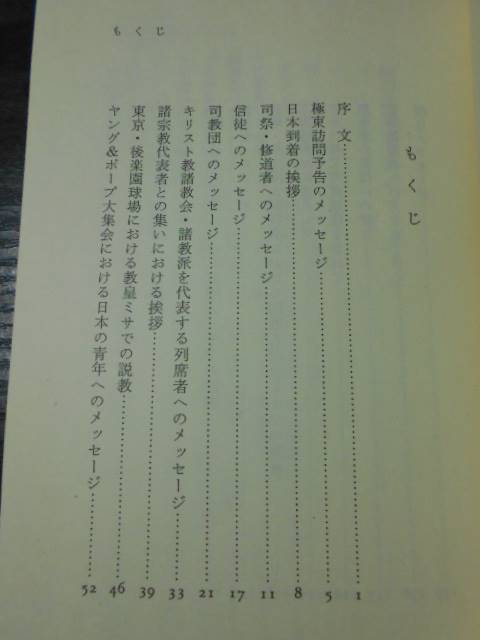 もくじ
もくじ
序文……1
極東訪問予告のメッセージ……5
日本到着の挨拶……8
司祭・修道者へのメッセージ……11
信徒へのメッセージ……17
司教団へのメッセージ……21
キリスト教諸教会・諸教派を代表する列席者へのメッセージ……33
諸宗教代表者との集いにおける挨拶……39
東京・後楽園球場における教皇ミサでの説教……46
ヤング&ポープ大集会における日本の青年へのメッセージ……52